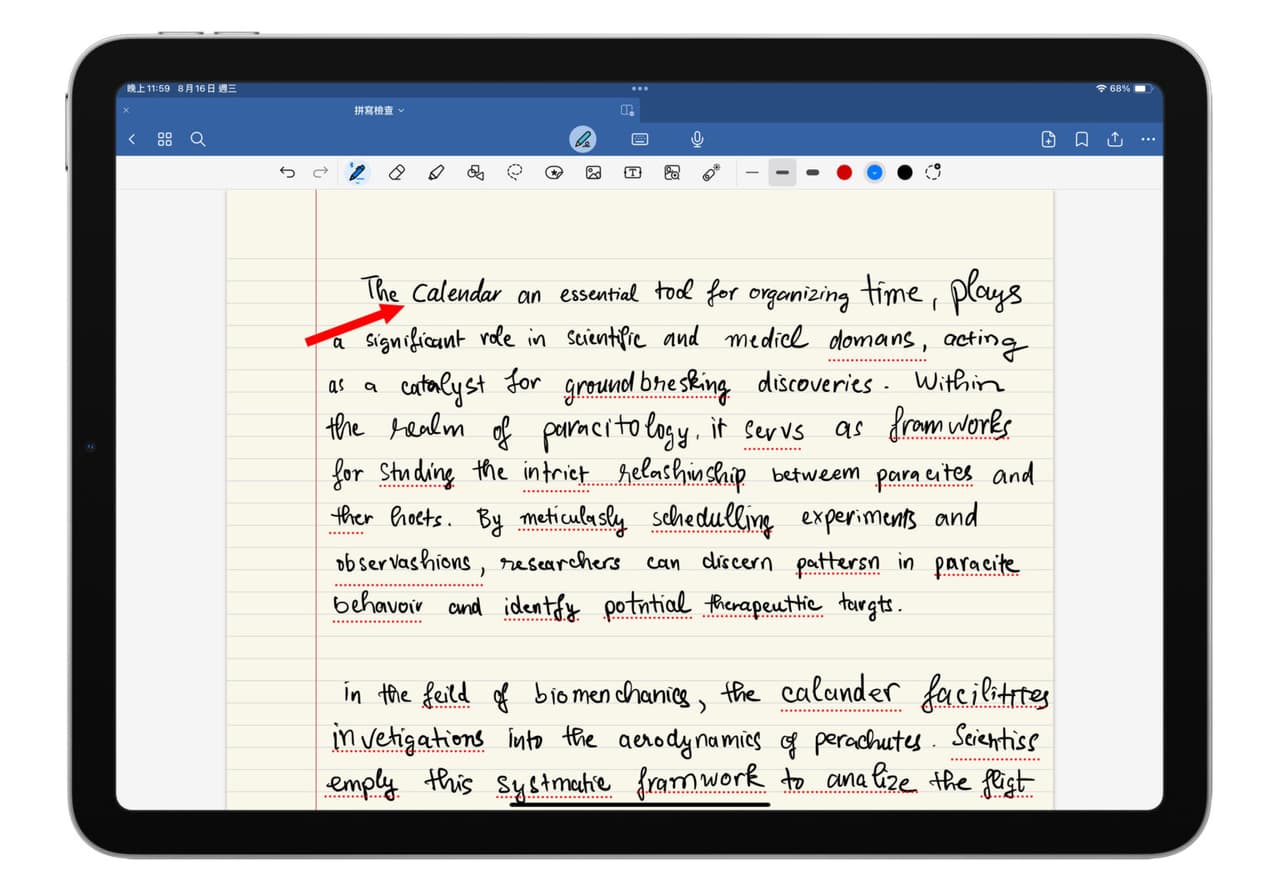 晚上11:59 8月16日 週三
68%
拼寫檢查
The Calendar an essential tool for organizing time, plays
a significant role in scientific and medicl domans, acting
as a catalyst for groundbresking discoveries. Within
the realm of paracitology, it servs as framworks
for studing the intrict relashinship betweem paracites and
ther hosts. By meticulasly schedulling experiments and
observashions, researchers can discern pattersn in paracite
behavoir and identfy potntial therapeuttic targts.
in the feild of biomenchanics, the calander facilittes
invetigations into the aerodynamics of perachutes. Scientiss
emply this systmatic framwork to analize the fligt